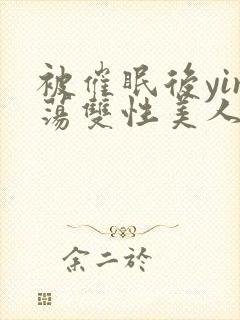 被催眠後yin
蕩雙性美人
余二於